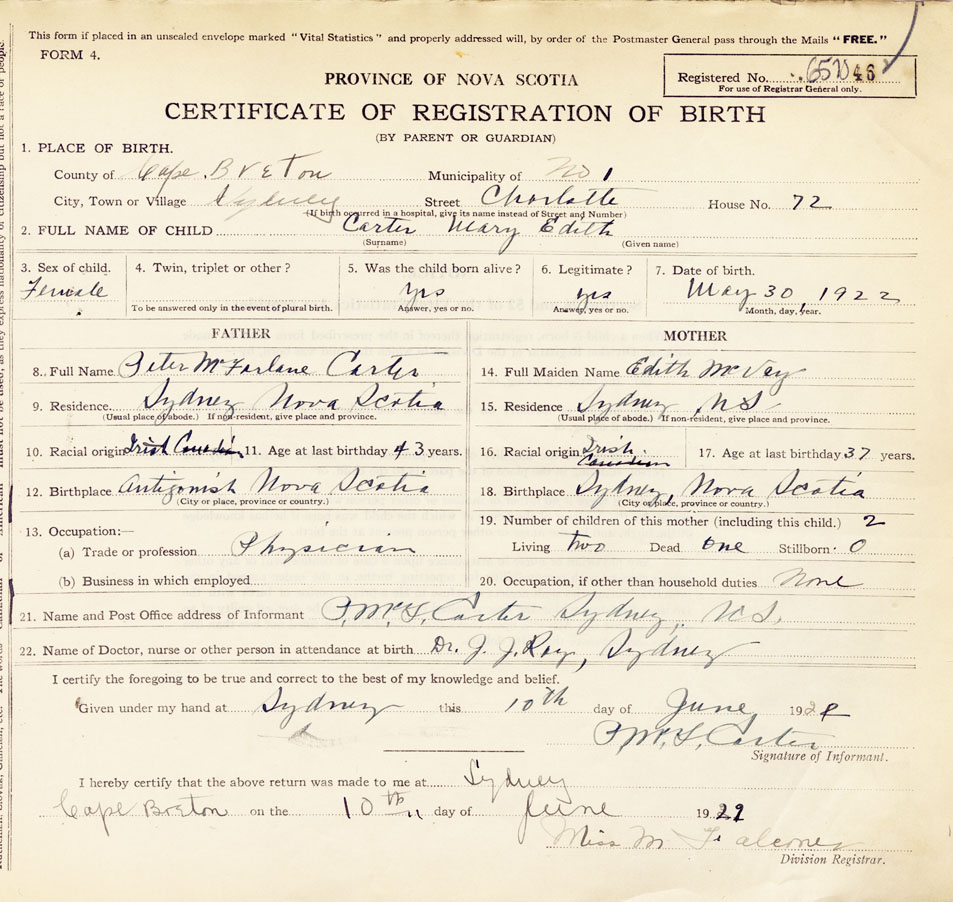 This form if placed in an unsealed envelope marked "Vital Statistics" and properly addressed will, by order of the Postmaster General pass through the Mails "FREE."
FORM 4.
PROVINCE OF NOVA SCOTIA
Registered No. 46
For use of Registrar General only.
CERTIFICATE OF REGISTRATION OF BIRTH
(BY PARENT OR GUARDIAN)
1. PLACE OF BIRTH.
County of Cape Breton Municipality of No 1
City, Town or Village Sydney Street Charlotte House No. 72
(If birth occurred in a hospital, give its name instead of Street and Number)
2. FULL NAME OF CHILD Carter Mary Edith
(Surname) (Given name)
3. Sex of child. 4. Twin, triplet or other? 5. Was the child born alive? 6. Legitimate? 7. Date of birth.
Female yes yes May 30, 1922
To be answered only in the event of plural birth. Answer, yes or no. Answer, yes or no. Month, day, year.
FATHER MOTHER
8. Full Name Peter McFarlane Carter 14. Full Maiden Name Edith McVey
9. Residence Sydney Nova Scotia 15. Residence Sydney, NS
(Usual place of abode.) If non-resident, give place and province. (Usual place of abode.) If non-resident, give place and province.
10. Racial origin Irish Canadian 11. Age at last birthday 43 years. 16. Racial origin Irish Canadian 17. Age at last birthday 37 years.
12. Birthplace Antigonish Nova Scotia 18. Birthplace Sydney, Nova Scotia
(City or place, province or country.) (City or place, province or country.)
13. Occupation:— 19. Number of children of this mother (including this child.) 2
(a) Trade or profession Physician Living two Dead one Stillborn 0
(b) Business in which employed 20. Occupation, if other than household duties None
21. Name and Post Office address of Informant P. McF. Carter Sydney, N.S.
22. Name of Doctor, nurse or other person in attendance at birth Dr. J. J. Roy, Sydney
I certify the foregoing to be true and correct to the best of my knowledge and belief.
Given under my hand at Sydney this 10th day of June 19
P. McF. Carter
Signature of Informant.
I hereby certify that the above return was made to me at Sydney
Cape Breton on the 10th day of June 19
Miss M
Division Registrar.